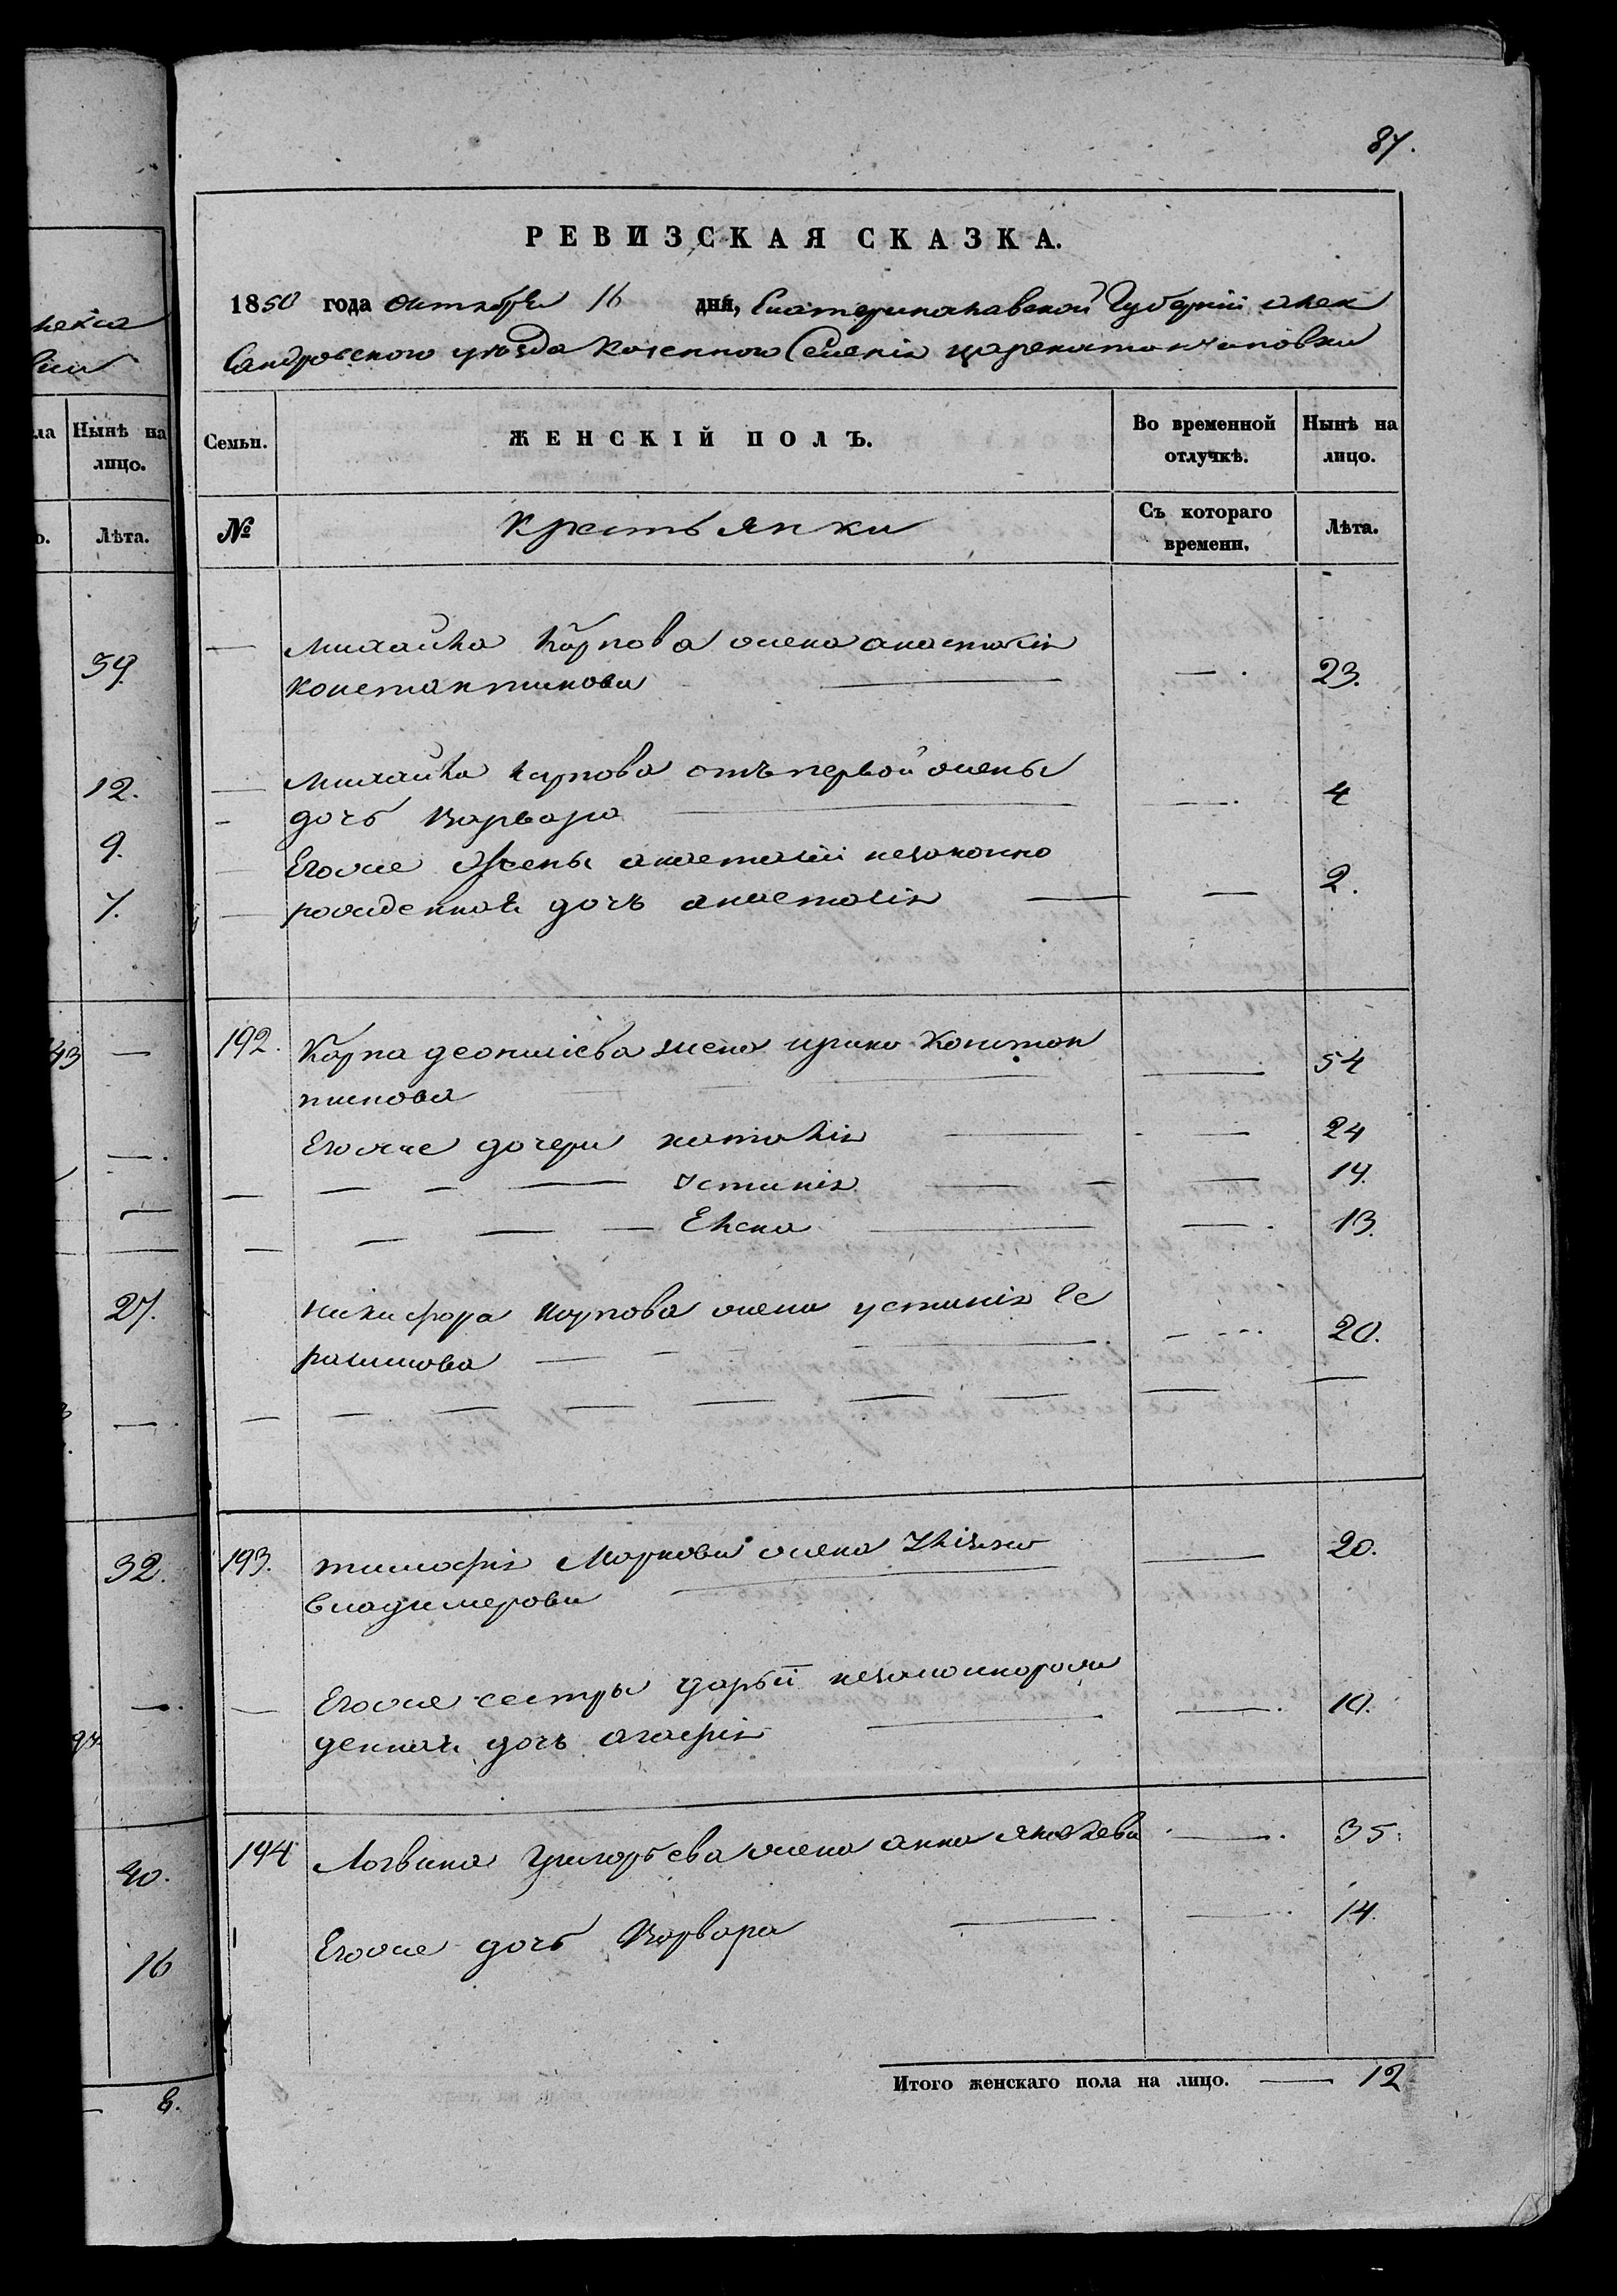 87.
РЕВИЗСКАЯ СКАЗКА.
1850 года Октября 16 дня, Екатеринославской Губерніи алек
сандровского уѣзда Казенного Селенія Цареконстантиновки
Семьи.
ЖЕНСКІЙ ПОЛЪ.
Во временной отлучкѣ.
Нынѣ на лицо.
№
Крестьянки
Съ котораго времени.
Лѣта.
— Михайла Карпова жена анастасія
Константинова — — 23.
— Михайла Карпова отъ первой жены
— дочь Варвара — — 4
Егоже Жены анастасіи незаконно
— рожденная дочь анастасія — — 2.
192. Карпа деонисіева жена ирина Констан
тинова — — 54
Егоже дочери наталія — — 24
— — — — Устинія — — 14.
— — — — Елена — — 13.
Никифора Карпова жена устинія Ге
расимова — — 20.
193. тимофія Маркова жена Улияна
владимерова — — 20.
— Егоже сестры дарьи незаконнорож
денная дочь агафія — — 10.
194 Логвина Григорьева жена анна яковлева — 35.
Егоже дочь Варвара — — 14.
Итого женскаго пола на лицо. — 12
лекса
ла
Нынѣ на
лицо.
Лѣта.
59.
12.
9.
7.
43 —
— .
—
27.
— .
32.
— .
40.
16
— 8.